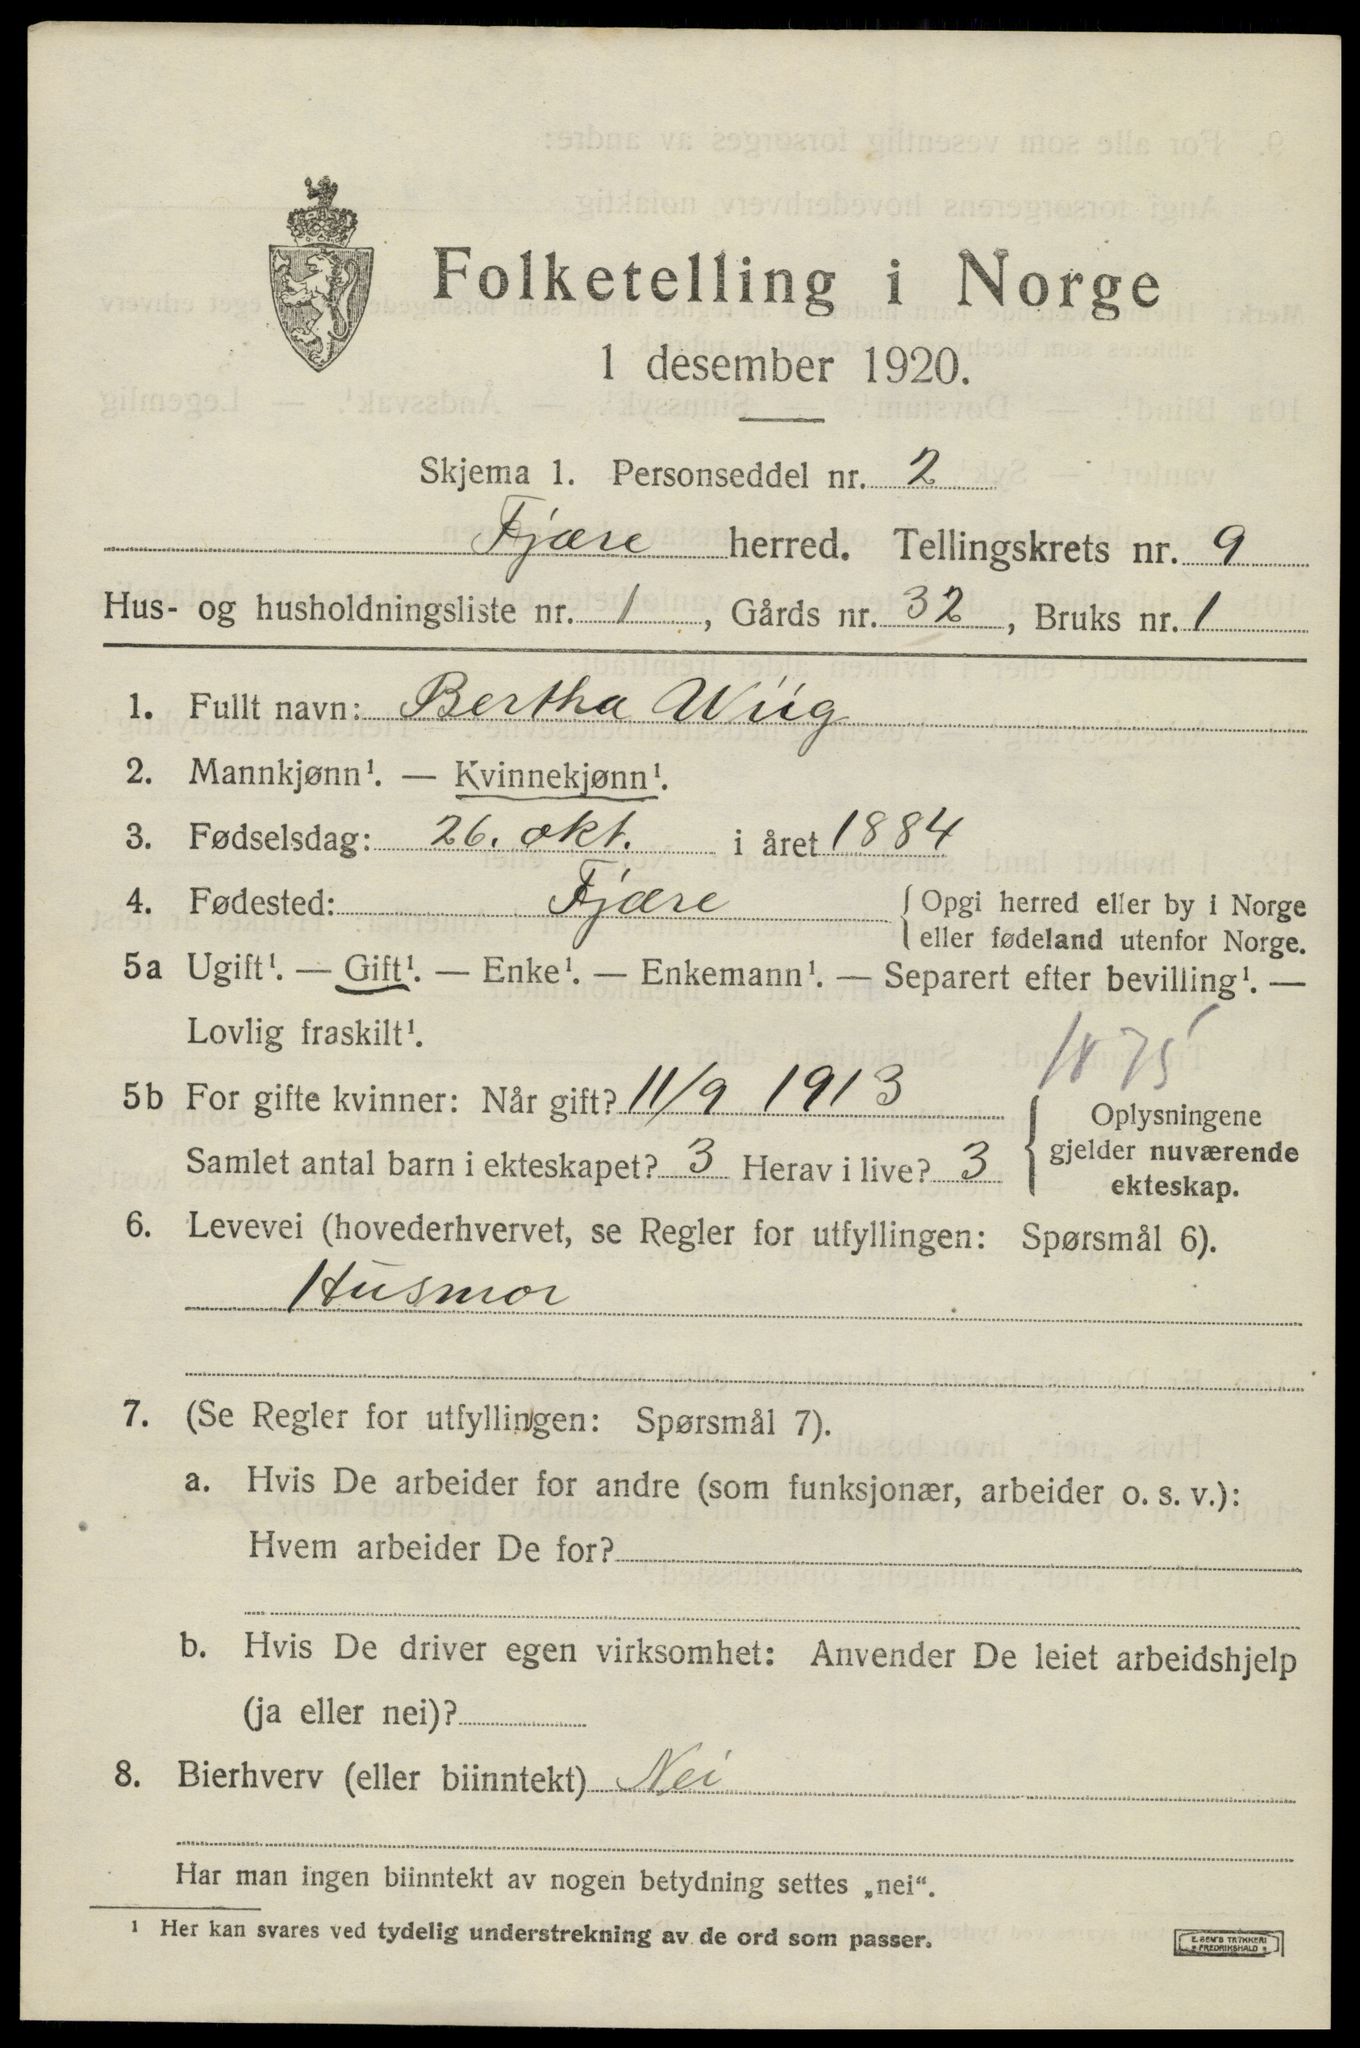 Folketelling i Norge
1 desember 1920.
Skjema 1. Personseddel nr. 2
Fjære herred. Tellingskrets nr. 9
Hus- og husholdningsliste nr. 1, Gårds nr. 32, Bruks nr. 1
1. Fullt navn: Bertha Wiig
2. Mannkjønn¹. — Kvinnekjønn¹.
3. Fødselsdag: 26. okt. i året 1884
4. Fødested: Fjære { Opgi herred eller by i Norge
eller fødeland utenfor Norge.
5a Ugift¹. — Gift¹. — Enke¹. — Enkemann¹. — Separert efter bevilling¹. —
Lovlig fraskilt¹.
1875
5b For gifte kvinner: Når gift? 11/9 1913
Oplysningene
gjelder nuværende
ekteskap.
Samlet antal barn i ekteskapet? 3 Herav i live? 3
6. Levevei (hovederhvervet, se Regler for utfyllingen: Spørsmål 6).
Husmor
7. (Se Regler for utfyllingen: Spørsmål 7).
a. Hvis De arbeider for andre (som funksjonær, arbeider o. s. v.):
Hvem arbeider De for?
b. Hvis De driver egen virksomhet: Anvender De leiet arbeidshjelp
(ja eller nei)?
8. Bierhverv (eller biinntekt) Nei
Har man ingen biinntekt av nogen betydning settes „nei“.
¹ Her kan svares ved tydelig understrekning av de ord som passer.
E. SEM'S TRYKKERI
FREDRIKSHALD